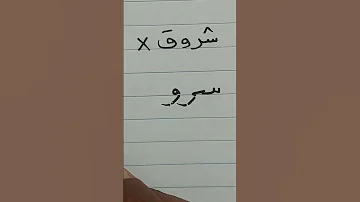 شروق x
سرو